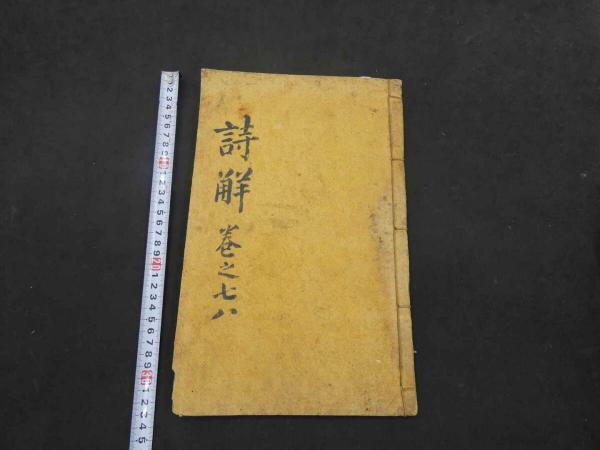 詩觧
卷之七八
1 2 3 4 5 6 7 8 9 10 1 2 3 4 5 6 7 8 9 20 1 2 3 4 5 6 7 8 9 30 1 2 3 4 5